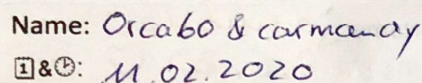 Name: Orcabo & carmandy
🗓&🕑: 11.02.2020